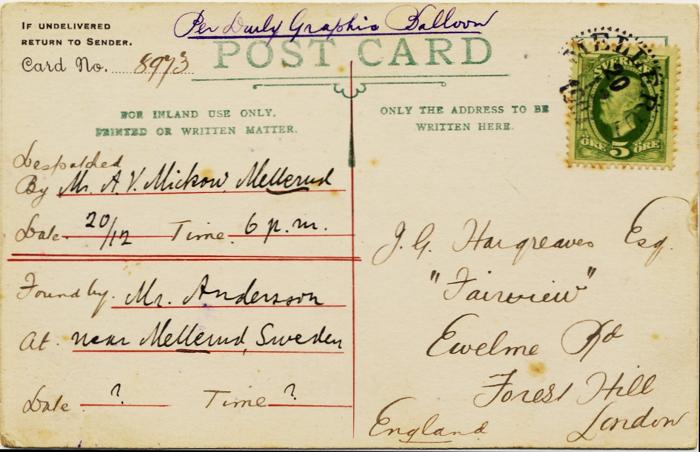 Per Daily Graphic Balloon
IF UNDELIVERED
RETURN TO SENDER.
Card No. 8973
POST CARD
FOR INLAND USE ONLY.
PRINTED OR WRITTEN MATTER.
ONLY THE ADDRESS TO BE
WRITTEN HERE.
SVERIGE
ÖRE 5 ÖRE
MELLERUD
20
Despatched
By Mr. A. V. Mickow, Mellerud
Date 20/12 Time 6 p.m.
Found by Mr. Andersson
At near Mellerud, Sweden
Date ? Time ?
J. G. Hargreaves Esq.
"Fairview"
Ewelme Rd
Forest Hill
London
England